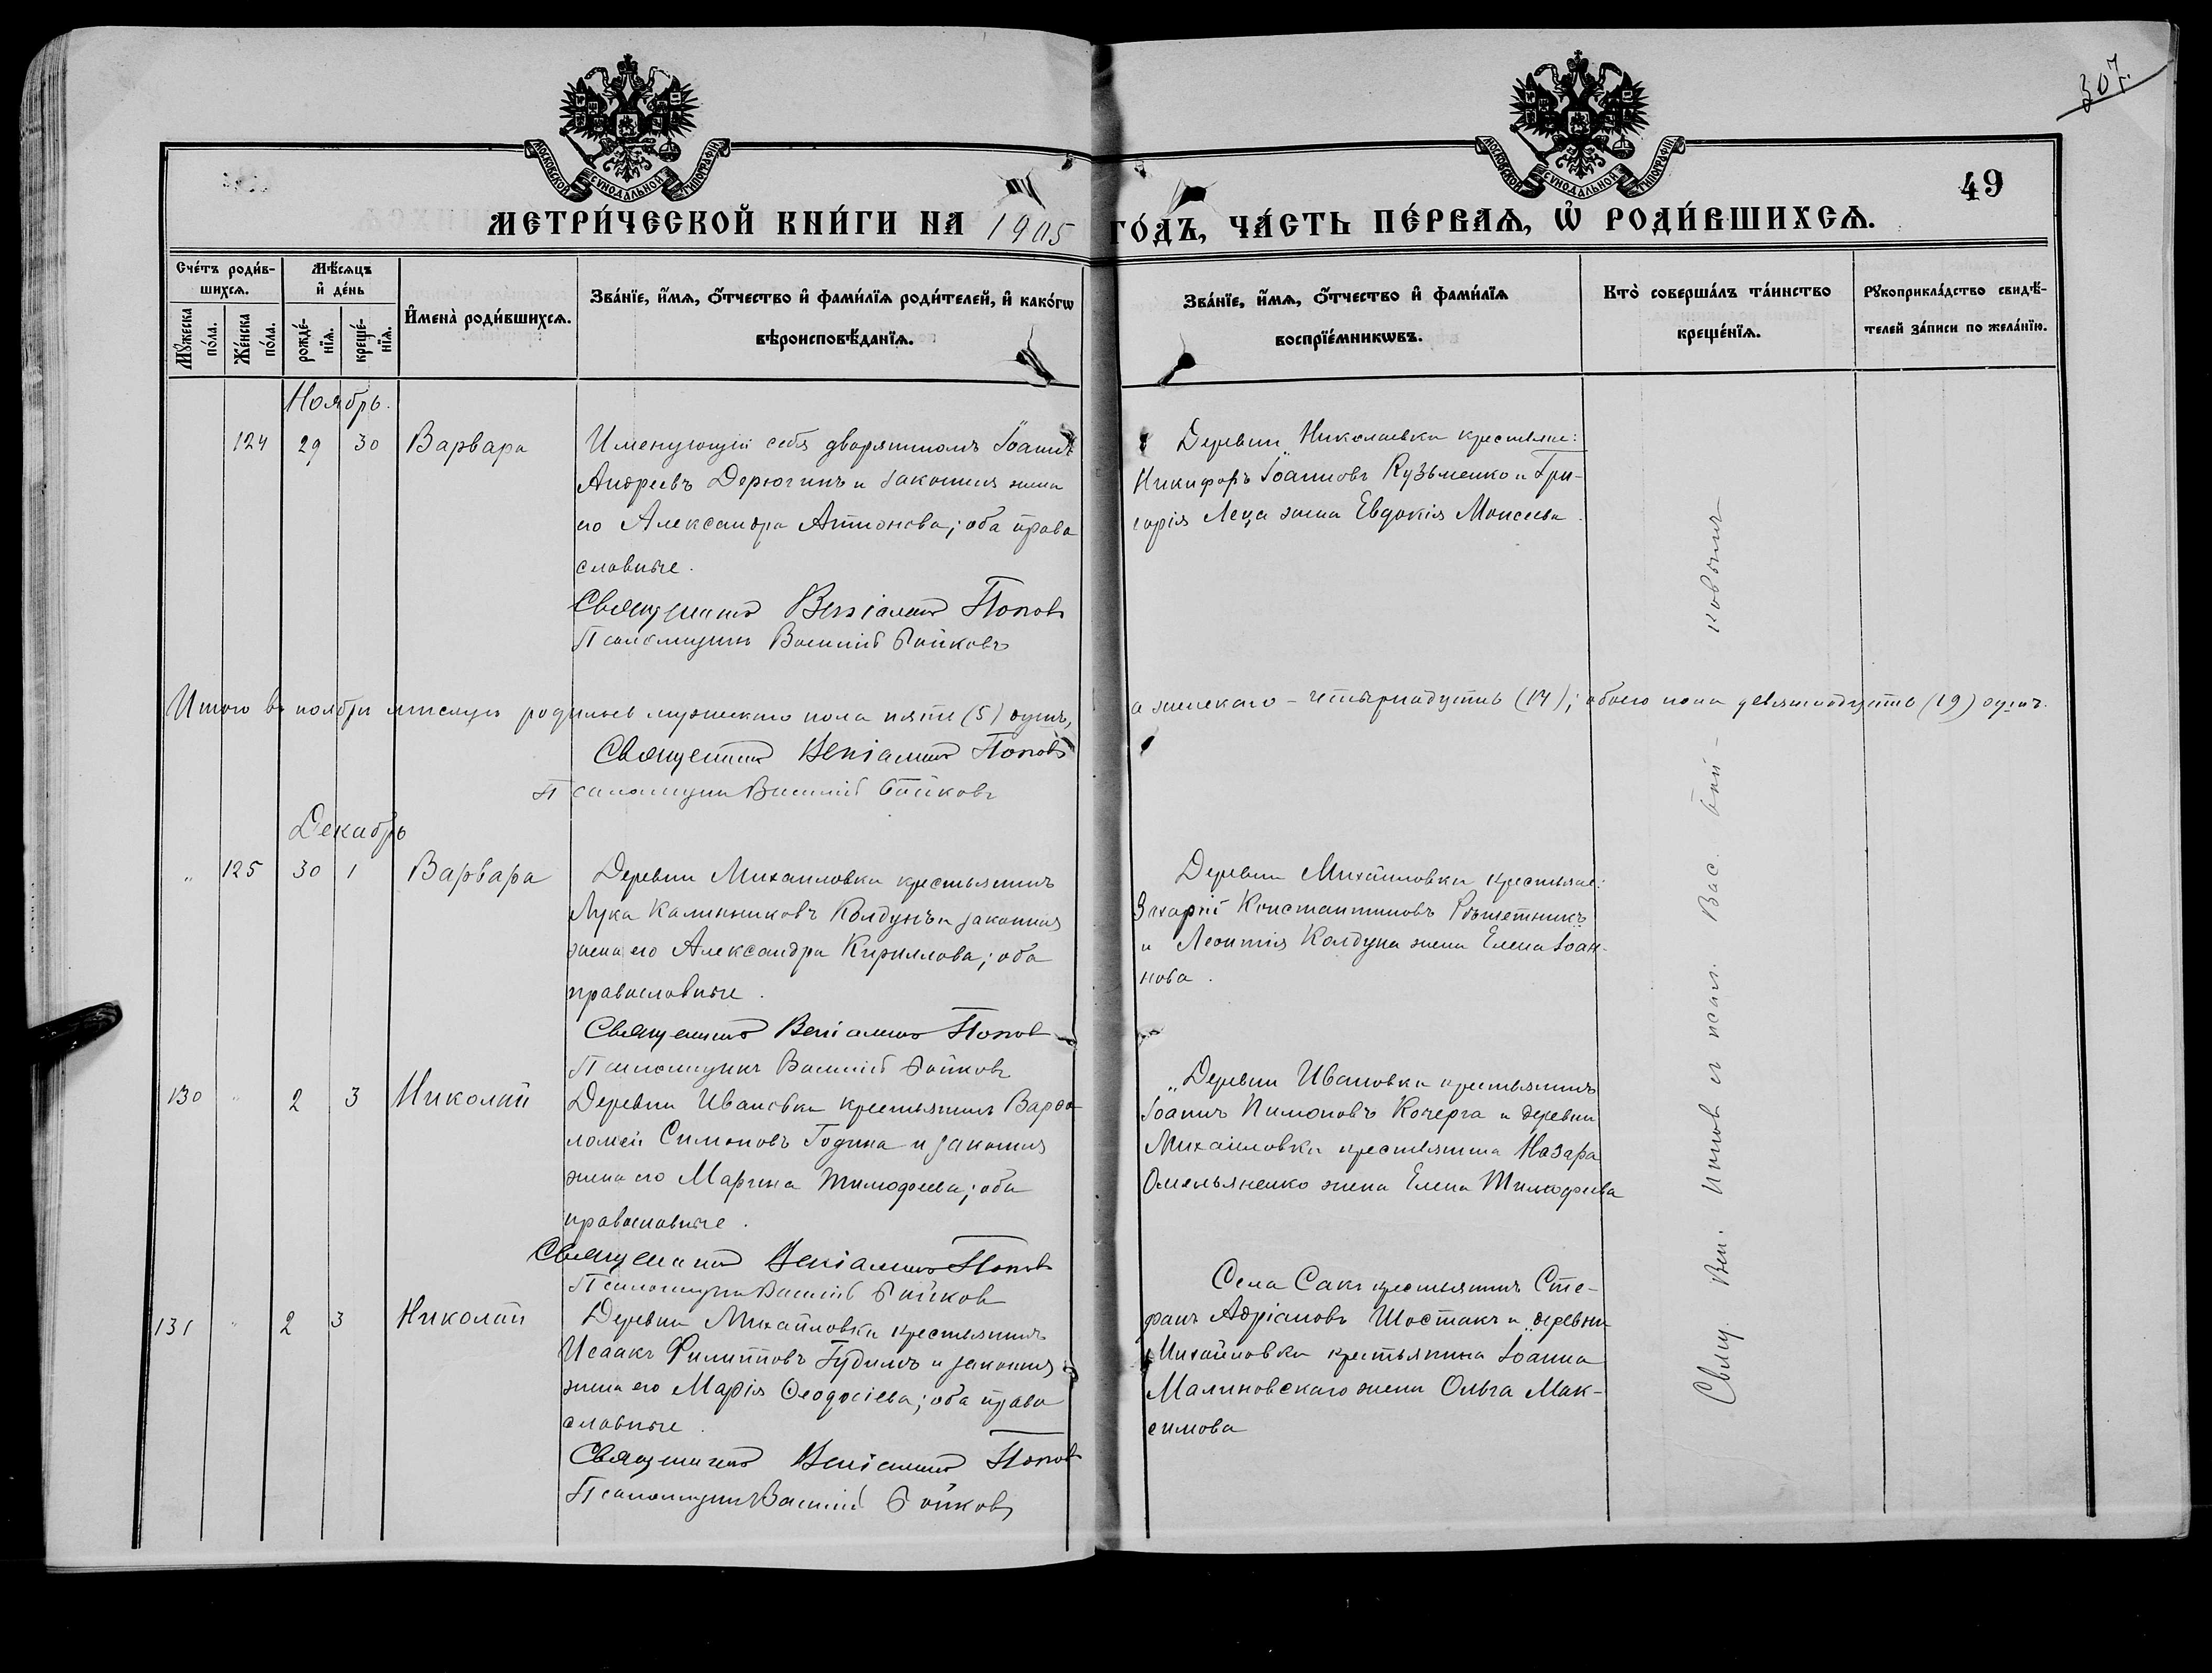 307.
МОСКОВСКОЙ СѴНОДАЛЬНОЙ ТИПОГРАФІИ
МОСКОВСКОЙ СѴНОДАЛЬНОЙ ТИПОГРАФІИ
49
МЕТРИ́ЧЕСКОЙ КНИ́ГИ НА 1905 ГО́ДЪ, ЧА́СТЬ ПЕ́РВАѦ, Ѡ҆ РОДИ́ВШИХСѦ.
Сче́тъ роди́в-
шихсѧ.
Мꙋ́жеска по́ла.
Же́нска по́ла.
Мѣ́сѧцъ
и҆ де́нь
рожде́-
нїѧ.
креще́-
нїѧ.
И҆мена̀ роди́вшихсѧ.
Зва́нїе, и҆́мѧ, ѻ҆́тчество и҆ фами́лїѧ роди́телей, и҆ како́гѡ
вѣроисповѣ́данїѧ.
Зва́нїе, и҆́мѧ, ѻ҆́тчество и҆ фами́лїѧ
воспрїе́мникѡвъ.
Кто̀ соверша́лъ та́инство
креще́нїѧ.
Рꙋкоприкла́дство свидѣ́-
телей за́писи по жела́нїю.
Ноябрь.
124 29 30 Варвара
Именующій себя дворяниномъ Іоаннъ
Андреевъ Дерюгинъ и законная жена
его Александра Антонова; оба право
славные.
Священникъ Веніаминъ Поповъ
Псаломщикъ Василій Бойковъ
Деревни Николаевки крестьяне:
Никифоръ Іоанновъ Кузьменко и Гри-
горія Леца жена Евдокія Моисеева.
Итого въ ноябрѣ мѣсяцѣ родилось мужескаго пола пять (5) душъ, а женскаго – четырнадцать (14); обоего пола девятнадцать (19) душъ.
Священникъ Веніаминъ Поповъ
Псаломщикъ Василій Бойковъ
Декабрь
" 125 30 1 Варвара
Деревни Михайловки крестьянинъ
Лука Калинниковъ Колдунъ и законная
жена его Александра Кириллова; оба
православные.
Священникъ Веніаминъ Поповъ
Псаломщикъ Василій Бойковъ
Деревни Михайловки крестьяне:
Захарій Константиновъ Рѣшетникъ
и Леонтія Колдуна жена Елена Іоан-
нова.
130 " 2 3 Николай
Деревни Ивановки крестьянинъ Варѳо
ломей Симоновъ Година и законная
жена его Марина Тимофеева; оба
православные.
Священникъ Веніаминъ Поповъ
Псаломщикъ Василій Бойковъ
Деревни Ивановки крестьянинъ
Іоаннъ Пимоновъ Кочерга и деревни
Михайловки крестьянина Назара
Омельяненко жена Елена Тимофеева
131 " 2 3 Николай
Деревни Михайловки крестьянинъ
Исаакъ Филипповъ Гудимъ и законная
жена его Марія Ѳеодосіева; оба право
славные.
Священникъ Веніаминъ Поповъ
Псаломщикъ Василій Бойковъ
Села Саки крестьянинъ Сте-
фанъ Адріановъ Шостакъ и деревни
Михайловки крестьянина Іоанна
Малиновскаго жена Ольга Мак-
симова
Свящ. Вен. Поповъ съ псал. Вас. Бой-ковымъ